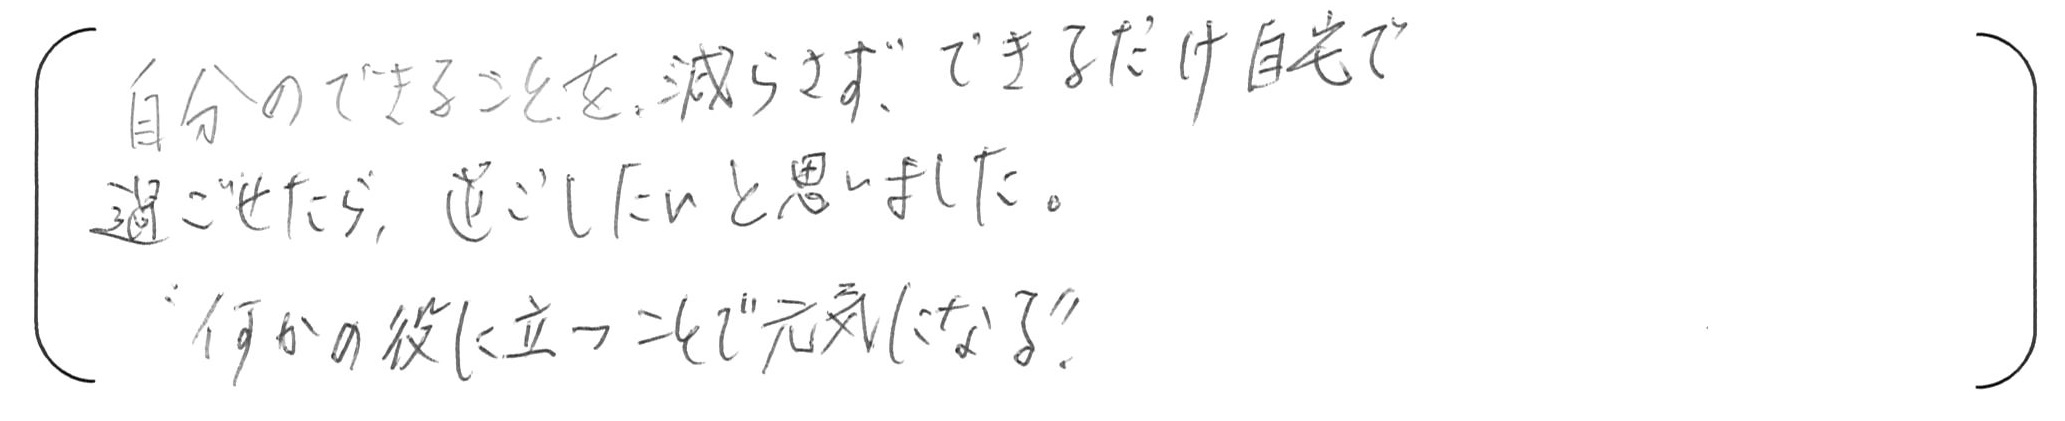 自分のできることを、減らさず、できるだけ自宅で
過ごせたら、過ごしたいと思いました。
"何かの役に立つことで元気になる!!